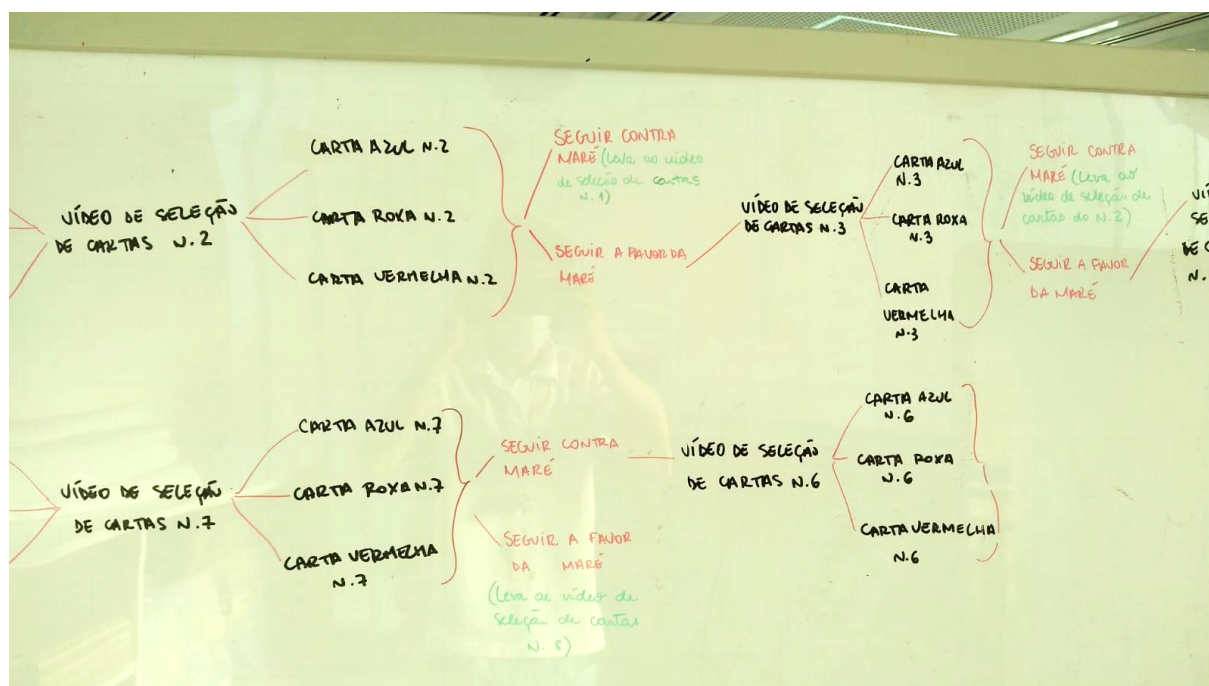 VÍDEO DE SELEÇÃO
DE CARTAS N.2
CARTA AZUL N.2
CARTA ROXA N.2
CARTA VERMELHA N.2
SEGUIR CONTRA
MARÉ (Leva ao vídeo
de seleção de cartas
N. 1)
SEGUIR A FAVOR DA
MARÉ
VÍDEO DE SELEÇÃO
DE CARTAS N.3
CARTA AZUL
N.3
CARTA ROXA
N.3
CARTA
VERMELHA
N.3
SEGUIR CONTRA
MARÉ (Leva ao
vídeo de seleção de
cartas do N.2)
SEGUIR A FAVOR
DA MARÉ
VÍ
SE
DE C
N.
VÍDEO DE SELEÇÃO
DE CARTAS N.7
CARTA AZUL N.7
CARTA ROXA N.7
CARTA VERMELHA
N.7
SEGUIR CONTRA
MARÉ
SEGUIR A FAVOR
DA MARÉ
(Leva ao vídeo de
seleção de cartas
N. 8)
VÍDEO DE SELEÇÃO
DE CARTAS N.6
CARTA AZUL
N.6
CARTA ROXA
N.6
CARTA VERMELHA
N.6